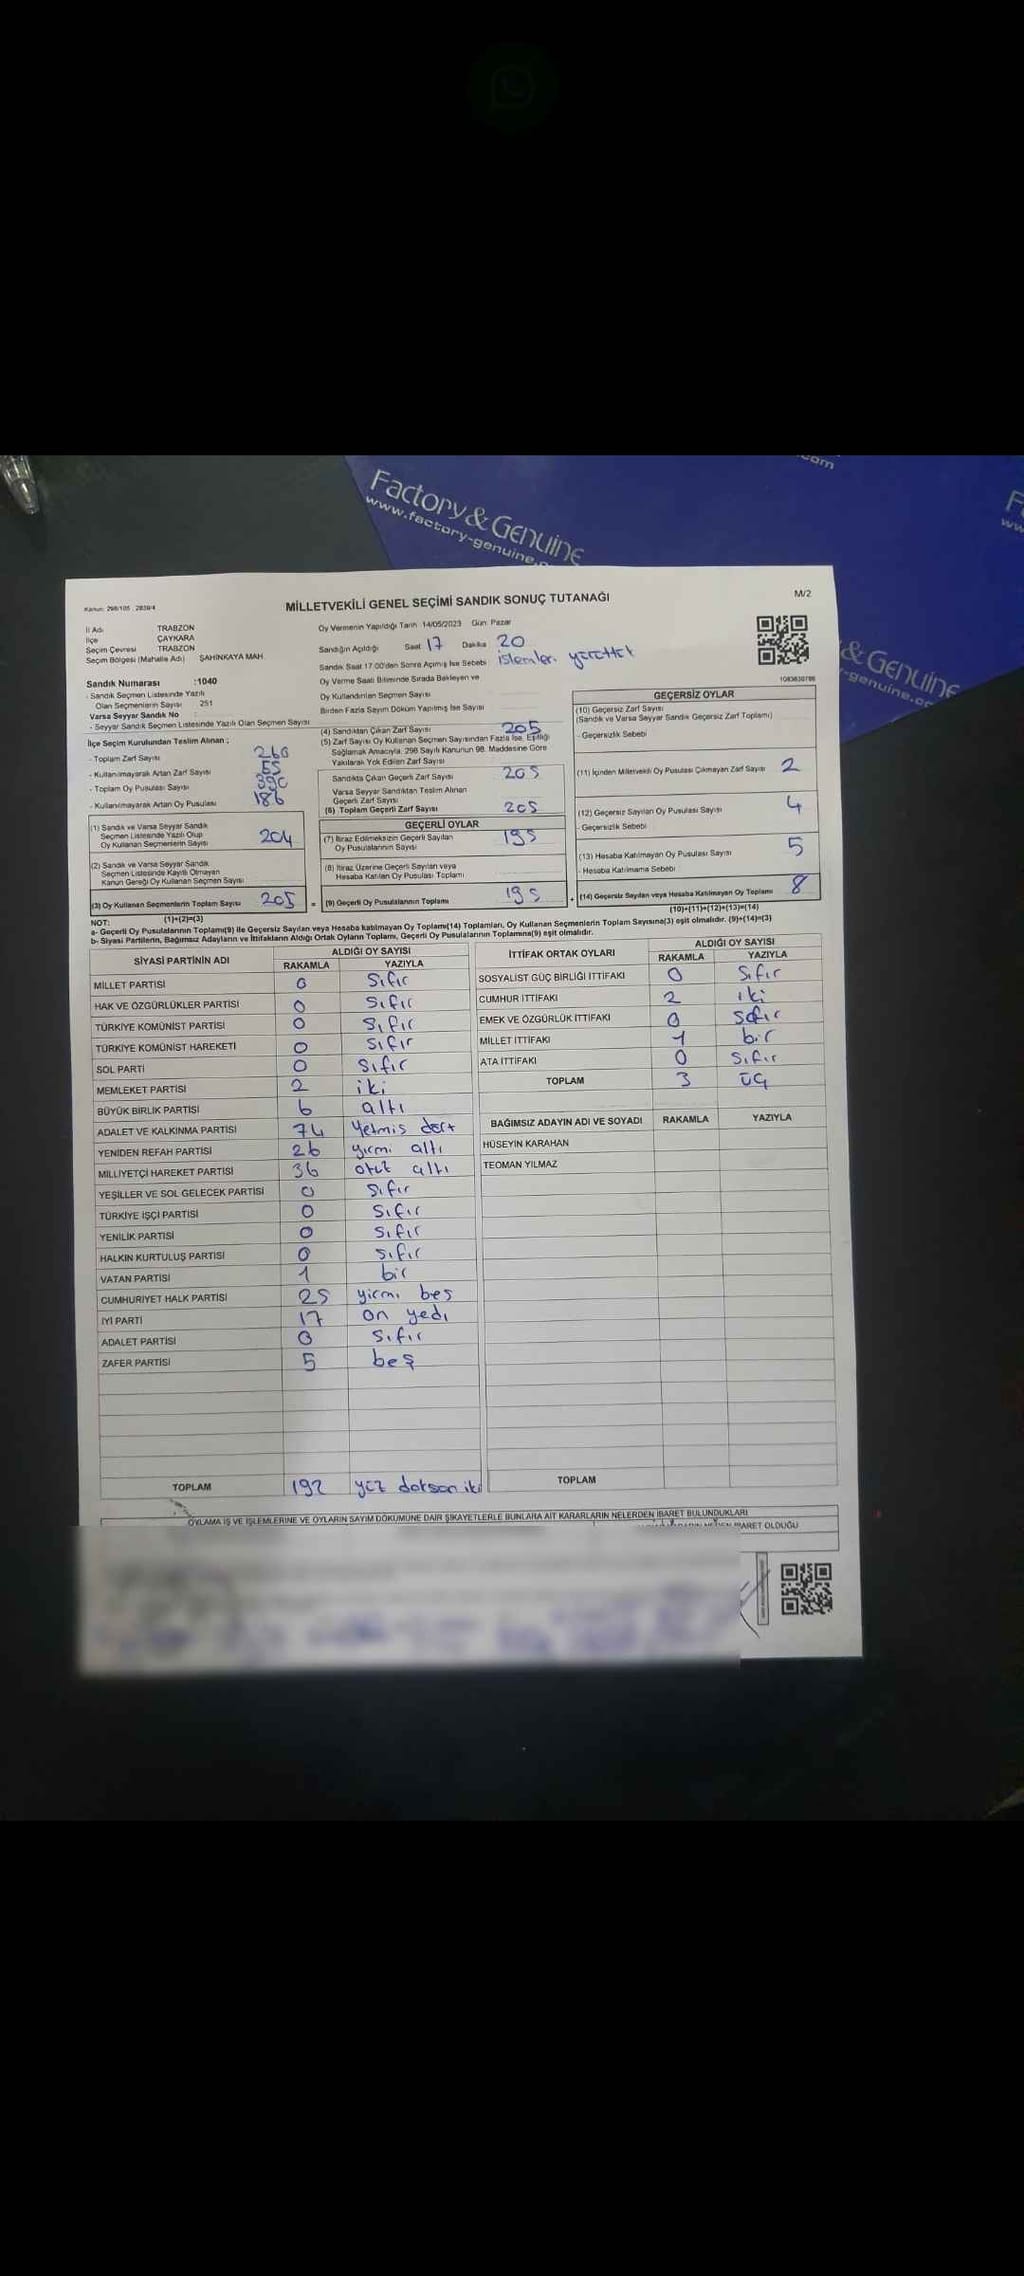 Factory & Genuine
www.factory-genuine.c
com
& Genuine
-genuine.co
Kanun: 298/105 , 2839/4
MİLLETVEKİLİ GENEL SEÇİMİ SANDIK SONUÇ TUTANAĞI
M/2
İl Adı TRABZON
İlçe ÇAYKARA
Seçim Çevresi TRABZON
Seçim Bölgesi (Mahalle Adı) ŞAHİNKAYA MAH.
Oy Vermenin Yapıldığı Tarih 14/05/2023 Gün: Pazar
Sandığın Açıldığı Saat 17 Dakika 20
Sandık Saat 17.00'den Sonra Açımış İse Sebebi
Sandık Numarası :1040
- Sandık Seçmen Listesinde Yazılı
Olan Seçmenlerin Sayısı 251
Varsa Seyyar Sandık No
- Seyyar Sandık Seçmen Listesinde Yazılı Olan Seçmen Sayısı
Oy Verme Saati Bitiminde Sırada Bekleyen ve
Oy Kullandırılan Seçmen Sayısı
Birden Fazla Sayım Döküm Yapılmış İse Sayısı
İlçe Seçim Kurulundan Teslim Alınan ;
- Toplam Zarf Sayısı 260
- Kullanılmayarak Artan Zarf Sayısı 55
- Toplam Oy Pusulası Sayısı 390
- Kullanılmayarak Artan Oy Pusulası 186
(1) Sandık ve Varsa Seyyar Sandık
Seçmen Listesinde Yazılı Olup
Oy Kullanan Seçmenlerin Sayısı 204
(2) Sandık ve Varsa Seyyar Sandık
Seçmen Listesinde Kayıtlı Olmayan
Kanun Gereği Oy Kullanan Seçmen Sayısı
(3) Oy Kullanan Seçmenlerin Toplam Sayısı 205
(1)+(2)=(3)
(4) Sandıktan Çıkan Zarf Sayısı 205
(5) Zarf Sayısı Oy Kullanan Seçmen Sayısından Fazla İse, Eşitliği
Sağlamak Amacıyla, 298 Sayılı Kanunun 98. Maddesine Göre
Yakılarak Yok Edilen Zarf Sayısı
Sandıkta Çıkan Geçerli Zarf Sayısı 205
Varsa Seyyar Sandıktan Teslim Alınan
Geçerli Zarf Sayısı
(6) Toplam Geçerli Zarf Sayısı 205
GEÇERLİ OYLAR
(7) İtiraz Edilmeksizin Geçerli Sayılan
Oy Pusulalarının Sayısı 195
(8) İtiraz Üzerine Geçerli Sayılan veya
Hesaba Katılan Oy Pusulası Toplamı
= (9) Geçerli Oy Pusulalarının Toplamı 195
1083630786
GEÇERSİZ OYLAR
(10) Geçersiz Zarf Sayısı
(Sandık ve Varsa Seyyar Sandık Geçersiz Zarf Toplamı)
- Geçersizlik Sebebi
(11) İçinden Milletvekili Oy Pusulası Çıkmayan Zarf Sayısı 2
(12) Geçersiz Sayılan Oy Pusulası Sayısı 4
- Geçersizlik Sebebi
(13) Hesaba Katılmayan Oy Pusulası Sayısı 5
- Hesaba Katılmama Sebebi
+ (14) Geçersiz Sayılan veya Hesaba Katılmayan Oy Toplamı 8
(10)+(11)+(12)+(13)=(14)
NOT:
a- Geçerli Oy Pusulasının Toplamı(9) ile Geçersiz Sayılan veya Hesaba katılmayan Oy Toplamı(14) Toplamları, Oy Kullanan Seçmenlerin Toplam Sayısına(3) eşit olmalıdır. (9)+(14)=(3)
b- Siyasi Partilerin, Bağımsız Adayların ve İttifakların Aldığı Ortak Oyların Toplamı, Geçerli Oy Pusulalarının Toplamına(9) eşit olmalıdır.
SİYASİ PARTİNİN ADI ALDIĞI OY SAYISI
RAKAMLA YAZIYLA
MİLLET PARTİSİ 0 Sıfır
HAK VE ÖZGÜRLÜKLER PARTİSİ 0 Sıfır
TÜRKİYE KOMÜNİST PARTİSİ 0 Sıfır
TÜRKİYE KOMÜNİST HAREKETİ 0 Sıfır
SOL PARTİ 0 Sıfır
MEMLEKET PARTİSİ 2 iki
BÜYÜK BİRLİK PARTİSİ 6 altı
ADALET VE KALKINMA PARTİSİ 74 Yetmis dört
YENİDEN REFAH PARTİSİ 26 yirmi altı
MİLLİYETÇİ HAREKET PARTİSİ 36 otuz altı
YEŞİLLER VE SOL GELECEK PARTİSİ 0 Sıfır
TÜRKİYE İŞÇİ PARTİSİ 0 Sıfır
YENİLİK PARTİSİ 0 Sıfır
HALKIN KURTULUŞ PARTİSİ 0 sıfır
VATAN PARTİSİ 1 bir
CUMHURİYET HALK PARTİSİ 25 yirmi beş
İYİ PARTİ 17 on yedi
ADALET PARTİSİ 0 Sıfır
ZAFER PARTİSİ 5 beş
TOPLAM 192 yüz doksan iki
İTTİFAK ORTAK OYLARI ALDIĞI OY SAYISI
RAKAMLA YAZIYLA
SOSYALİST GÜÇ BİRLİĞİ İTTİFAKI 0 Sıfır
CUMHUR İTTİFAKI 2 iki
EMEK VE ÖZGÜRLÜK İTTİFAKI 0 Sıfır
MİLLET İTTİFAKI 1 bir
ATA İTTİFAKI 0 Sıfır
TOPLAM 3 üç
BAĞIMSIZ ADAYIN ADI VE SOYADI RAKAMLA YAZIYLA
HÜSEYİN KARAHAN
TEOMAN YILMAZ
TOPLAM
OYLAMA İŞ VE İŞLEMLERİNE VE OYLARIN SAYIM DÖKÜMÜNE DAİR ŞİKAYETLERLE BUNLARA AİT KARARLARIN NELERDEN İBARET BULUNDUKLARI
İBARET OLDUĞU